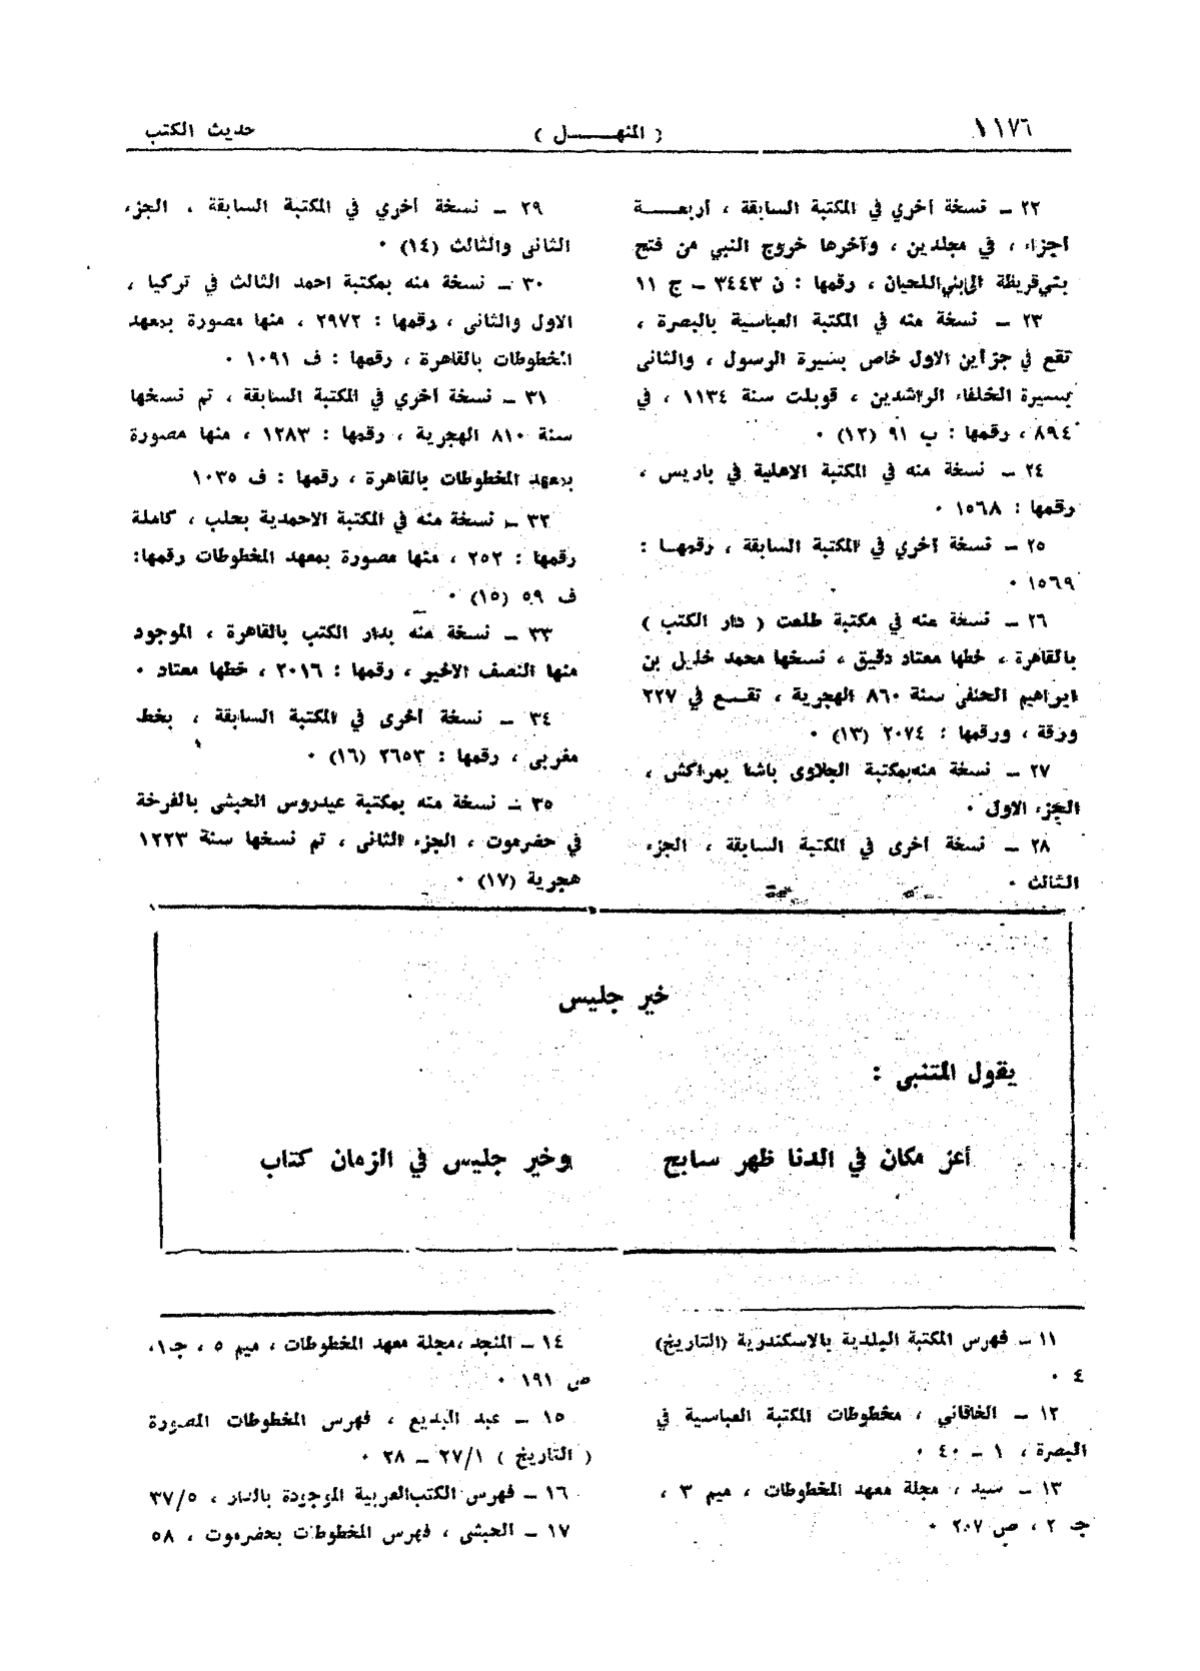 ١١٧٦
( المنهـــــل )
حديث الكتب
٢٢ ــ نسخة أخري في المكتبة السابقة ، أربعـــة
أجزاء ، في مجلدين ، وآخرها خروج النبي من فتح
بني قريظة الى بني اللحيان ، رقمها : ن ٣٤٤٣ ــ ج ١١
٢٣ ــ نسخة منه في المكتبة العباسية بالبصرة ،
تقع في جزأين الاول خاص بسيرة الرسول ، والثانى
بسيرة الخلفاء الراشدين ، قوبلت سنة ١١٣٤ ، في
٨٩٤ ، رقمها : ب ٩١ (١٢) ٠
٢٤ ــ نسخة منه في المكتبة الاهلية في باريس ،
رقمها : ١٥٦٨ ٠
٢٥ ــ نسخة أخري في المكتبة السابقة ، رقمهـا :
١٥٦٩ ٠
٢٦ ــ نسخة منه في مكتبة طلعت ( دار الكتب )
بالقاهرة ، خطها معتاد دقيق ، نسخها محمد خليل بن
ابراهيم الحنفى سنة ٨٦٠ الهجرية ، تقـــع في ٢٢٧
ورقة ، ورقمها : ٢٠٧٤ (١٣) ٠
٢٧ ــ نسخة منه بمكتبة الجلاوى باشا بمراكش ،
الجزء الاول ٠
٢٨ ــ نسخة أخرى في المكتبة السابقة ، الجزء
الثالث ٠
٢٩ ــ نسخة أخري في المكتبة السابقة ، الجزء
الثانى والثالث (١٤) ٠
٣٠ ــ نسخة منه بمكتبة احمد الثالث في تركيا ،
الاول والثانى ، رقمها : ٢٩٧٢ ، منها مصورة بمعهد
المخطوطات بالقاهرة ، رقمها : ف ١٠٩١ ٠
٣١ ــ نسخة أخري في المكتبة السابقة ، تم نسخها
سنة ٨١٠ الهجرية ، رقمها : ١٢٨٣ ، منها مصورة
بمعهد المخطوطات بالقاهرة ، رقمها : ف ١٠٣٥
٣٢ ــ نسخة منه في المكتبة الاحمدية بحلب ، كاملة
رقمها : ٢٥٢ ، منها مصورة بمعهد المخطوطات رقمها:
ف ٥٩ (١٥) ٠
٣٣ ــ نسخة منه بدار الكتب بالقاهرة ، الموجود
منها النصف الاخير ، رقمها : ٢٠١٦ ، خطها معتاد ٠
٣٤ ــ نسخة أخرى في المكتبة السابقة ، بخط
مغربى ، رقمها : ٢٦٥٣ (١٦) ٠
٣٥ ــ نسخة منه بمكتبة عيدروس الحبشى بالفرخة
في حضرموت ، الجزء الثانى ، تم نسخها سنة ١٢٢٣
هجرية (١٧) ٠
خير جليس
يقول المتنبى :
أعز مكان في الدنا ظهر سابح وخير جليس في الزمان كتاب
١١ ــ فهرس المكتبة البلدية بالاسكندرية (التاريخ)
٤ ٠
١٢ ــ الخاقاني ، مخطوطات المكتبة العباسية في
البصرة ، ١ ــ ٤٠ ٠
١٣ ــ سيد ، مجلة معهد المخطوطات ، ميم ٣ ،
جـ ٢ ، ص ٢٠٧ ٠
١٤ ــ المنجد ،مجلة معهد المخطوطات ، ميم ٥ ، جـ١،
ص ١٩١ ٠
١٥ ــ عبد البديع ، فهرس المخطوطات المصورة
( التاريخ ) ٢٧/١ ــ ٢٨ ٠
١٦ ــ فهرس الكتب العربية الموجودة بالدار ، ٣٧/٥
١٧ ــ الحبشى ، فهرس المخطوطات بحضرموت ، ٥٨